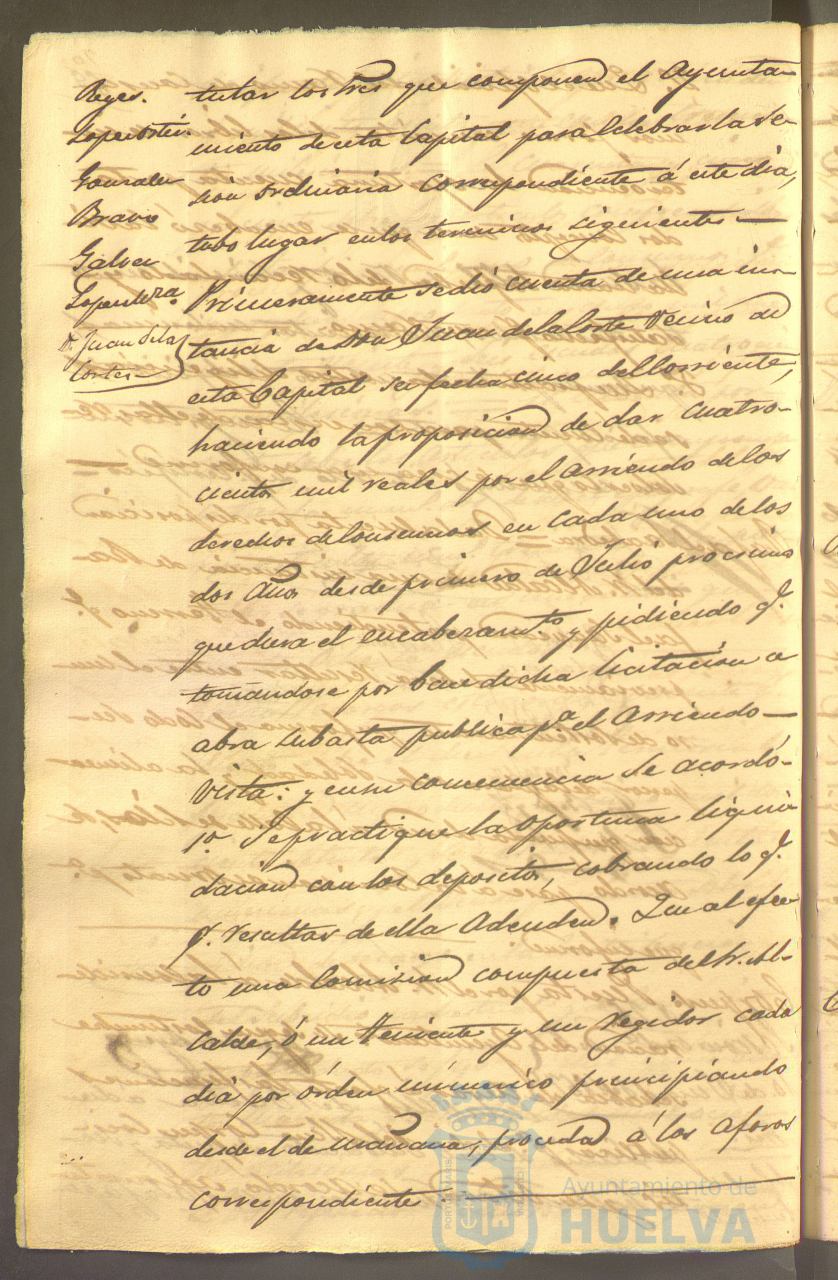 Reyes.
Lopez Ortiz.
Gonzalez
Bravo
Galvez
Lopez Hza.
D. Juan de la
Cortes
tular los Sres que componen el Ayunta-
miento de esta Capital para Celebrar la se-
sion ordinaria correspondiente á este dia,
tubo lugar en los terminos siguientes —
Primeramente se dió cuenta de una ins-
tancia de Don Juan de la Corte Vecino de
esta Capital su fecha cinco del Corriente,
haciendo la proposicion de dar cuatro-
cientos mil reales por el Arriendo de los
derechos de Consumos en cada uno de los
dos Años desde primero de Julio procsimo
que dura el encabezamto. y pidiendo q.
tomandose por base dicha licitacion se
abra subasta publica pa. el Arriendo —
Vista: y en su consecuencia se acordó-
1o. Se practique la oportuna liqui-
dacion con los depositos, cobrando lo q.
q. resultar de ella Adeuden. Que al efec-
to una Comision compuesta del Sr. Al-
calde, ó un Teniente y un regidor cada
dia por órden númerico principiando
desde el de mañana, proceda á los aforos
correspondiente
Ayuntamiento de
HUELVA